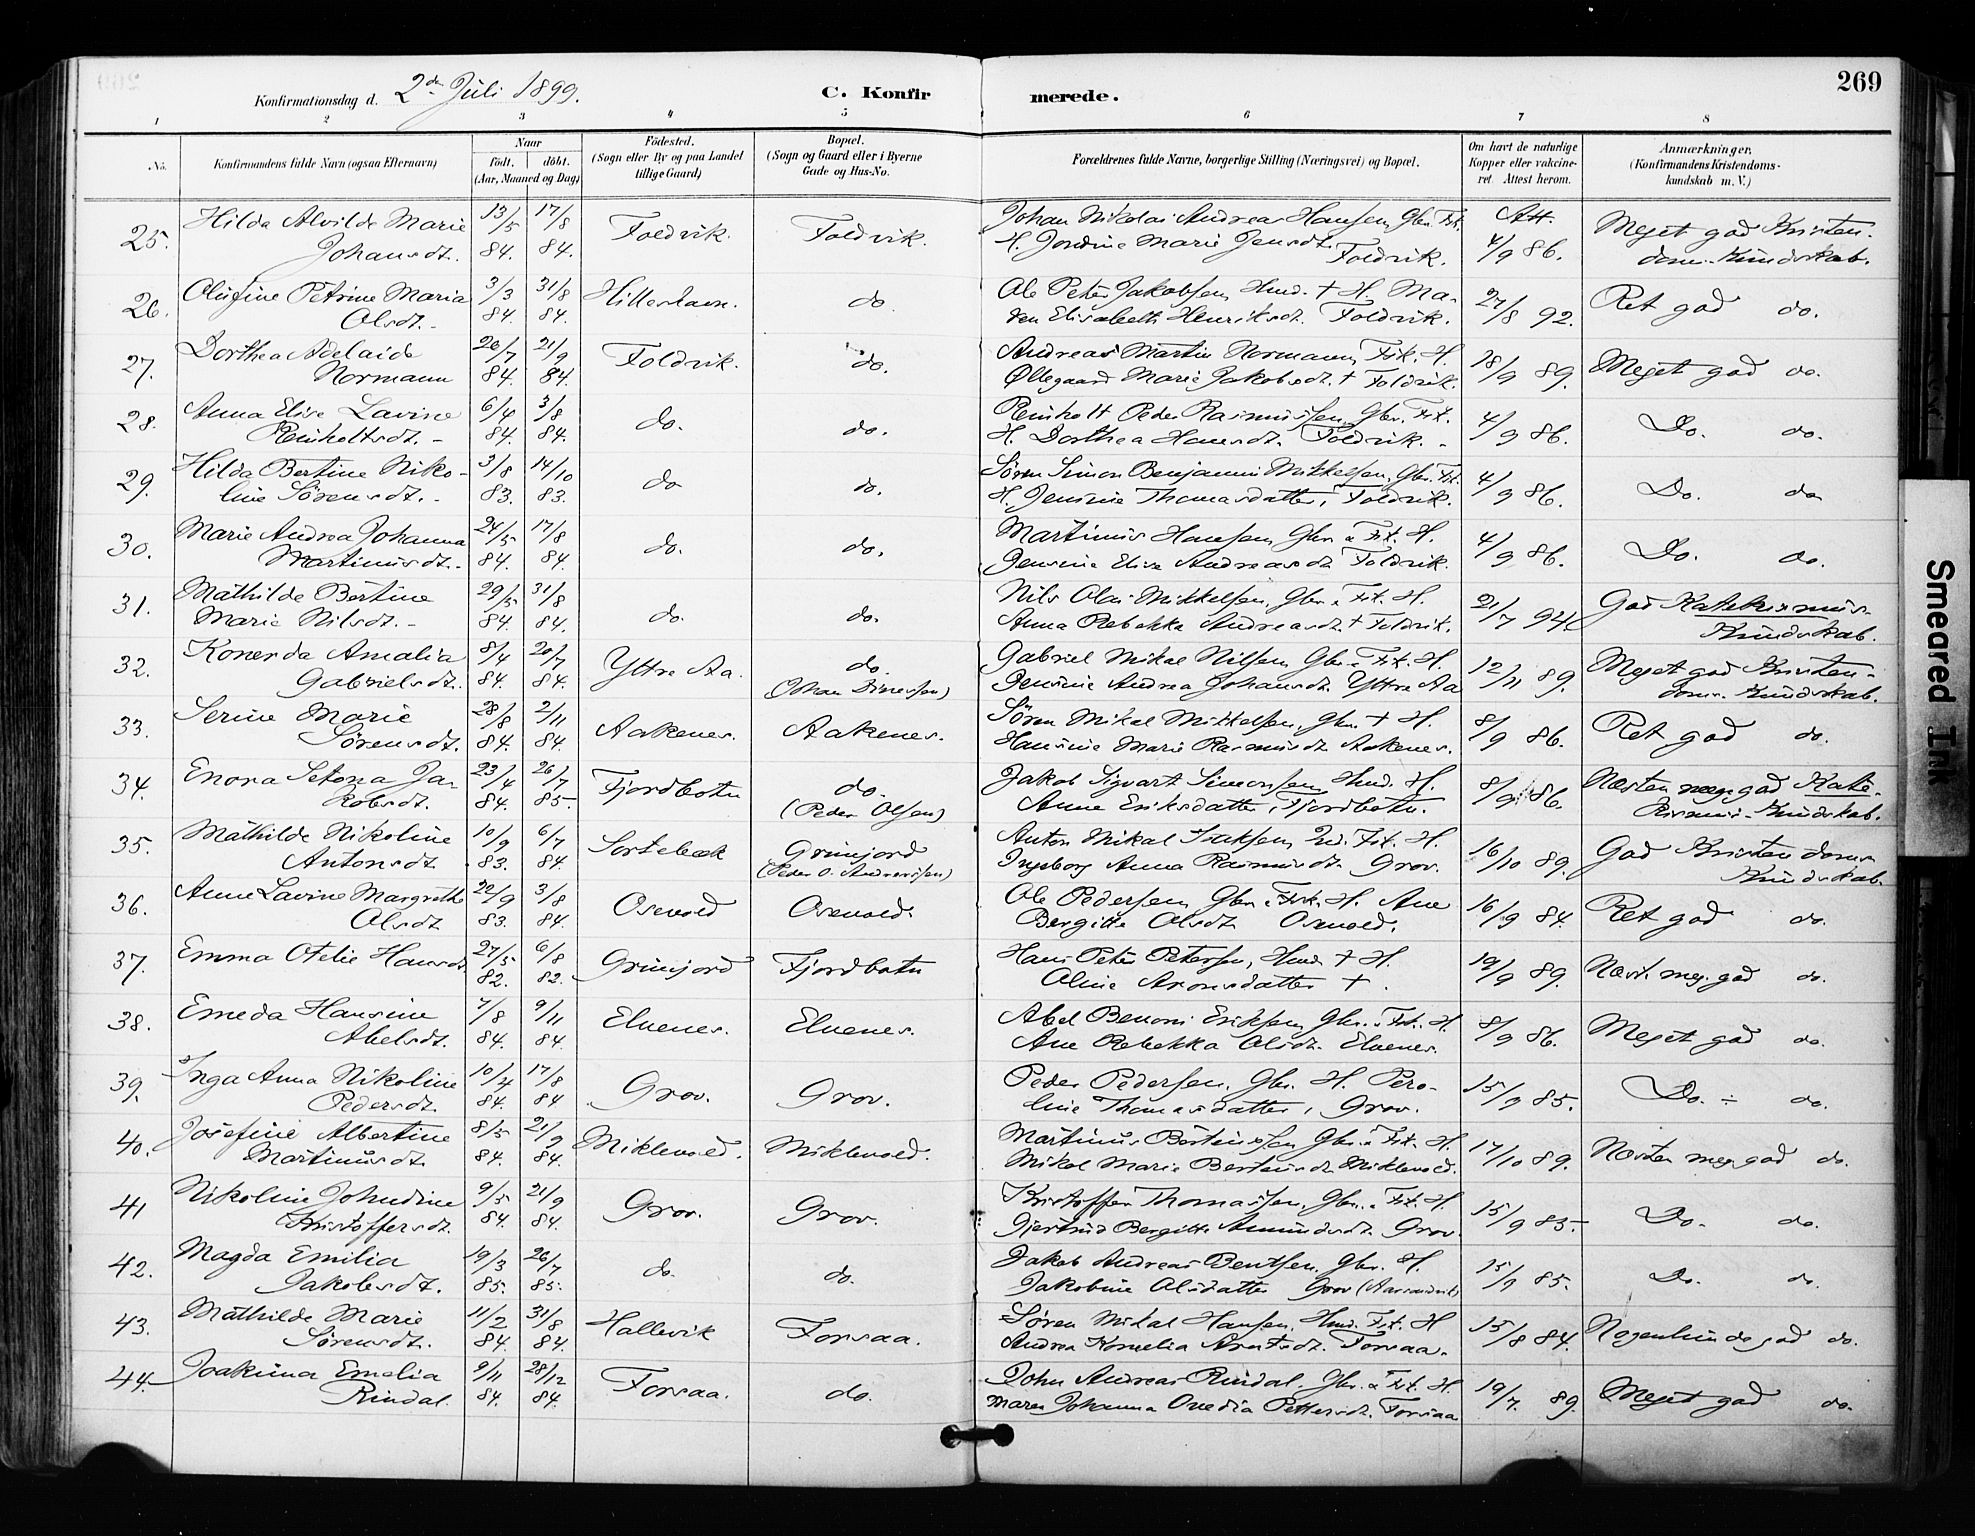 269
Konfirmationsdag d. 2den Juli 1899. C. Konfir merede.
1 2 3 4 5 6 7 8
No. Konfirmandens fulde Navn (ogsaa Efternavn) Naar født. døbt. (Aar, Maaned og Dag) Fødested. (Sogn eller By og paa Landet tillige Gaard) Bopæl. (Sogn og Gaard eller i Byerne Gade og Hus-No. Forældrenes fulde Navne, borgerlige Stilling (Næringsvei) og Bopæl. Om havt de naturlige Kopper eller vakcineret. Attest herom. Anmærkninger. (Konfirmandens Kristendomskundskab m. V.)
25. Hilda Alvilde Marie 13/5 17/8 Foldvik. Foldvik. Johan Nikolai Andreas Hansen, Gbr. Fsk. Att. Meget god Kristen-
Johansdt. 84. 84. H. Jordine Marie Jensdt. Foldvik. 4/9 86. doms-Kundskab.
26. Olufine Petrine Maria 3/3 31/8 Hilleshavn. do Ole Peter Jakobsen, Hmd. + H. Ma- 27/8 92. Ret god do.
Olsdt. 84. 84. ren Elisabeth Henriksdt. Foldvik.
27. Dorthea Adelaide 26/7 21/9 Foldvik. do. Andreas Martin Normann, Fsk. H. 18/9 89. Meget god do.
Normann 84. 84. Øllegaard Marie Jakobsdt. + Foldvik.
28. Anna Elise Lavine 6/4 3/8 do. do. Reinholt Peder Rasmussen, Gbr. Fsk. 4/9 86. Do. do.
Reinholtsdt. 84. 84. H. Dorthea Hansdt. Foldvik.
29. Hilda Bertine Niko- 3/8 14/10 do do. Søren Simon Benjamin Mikkelsen, Gbr. Fsk. 4/9 86. Do. do
line Sørensdt. 83. 83. H. Jensine Thomasdatter, Foldvik.
30. Marie Andrea Johanna 24/5 17/8 do. do. Martinus Hansen, Gbr. & Fsk. H. 4/9 86. Do. do.
Martinusdt. 84. 84. Jensine Elise Andreasdt. Foldvik.
31. Mathilde Bertine 29/5 31/8 do. do. Nils Olai Mikkelsen, Gbr. & Fsk. H. 21/7 94. God Katekismus-
Marie Nilsdt. 84. 84. Anna Rebekka Andreasdt. + Foldvik. Kundskab.
32. Konerda Amalia 8/4 20/7 Yttre Aa. do. Gabriel Mikal Nilsen, Gbr. & Fsk. H. 12/11 89. Meget god Kristen-
Gabrielsdt. 84. 84. (Johan Dinessen) Jensine Andrea Johansdt. Yttre Aa doms-Kundskab.
33. Serine Marie 28/8 2/11 Aakenes. Aakenes. Søren Mikal Mikkelsen, Gbr. + H. 8/9 86. Ret god do.
Sørensdt. 84. 84. Hansine Marie Rasmusdt. Aakenes.
34. Enora Setona Ja- 23/4 26/7 Fjordbotn do. Jakob Sigvart Simonsen, Hmd. H. 8/9 86. Næsten meg. god Kate-
kobsdt. 84. 85. (Peder Olsen) Anne Eriksdatter, Fjordbotn. kismi-Kundskab.
35. Mathilde Nikoline 10/9 6/7 Sortebæk Grunjord Anton Mikal Isaksen, Ind. Fsk. H. 16/10 89. God Kristendoms
Antonsdt. 83. 84. (Peder O. Andreassen) Ingeborg Anna Rasmusdt. Grov. Kundskab.
36. Anne Lavine Margrethe 22/9 3/8 Osevold Osevold. Ole Pedersen, Gbr. & Fsk. H. Ane 16/9 84. Ret god do.
Olsdt 83. 84. Bergitte Olsdt. Osevold.
37. Emma Otelie Hansdt. 27/5 6/8 Grunjord Fjordbotn Hans Peter Petersen, Hmd. + H. 19/9 89. Næst. meg. god do.
82. 82. Oline Aronsdatter +.
38. Emeda Hansine 7/8 9/11 Elvenes. Elvenes. Abel Benoni Eriksen, Gbr. & Fsk. H. 8/9 86. Meget god do.
Abelsdt. 84. 84. Ane Rebekka Olsdt. Elvenes.
39. Inga Anna Nikoline 10/4 17/8 Grov. Grov. Peder Pedersen, Gbr. H. Pero- 15/9 85. Do. ÷ do.
Pedersdt. 84. 84 line Thomasdatter, Grov.
40. Josefine Albertine 8/5 21/9 Miklevold. Miklevold. Martinus Bertinsen, Gbr. & Fsk. H. 17/10 89. Næsten meg. god do.
Martinusdt. 84. 84. Mikal Marie Berteusdt. Miklevold.
41 Nikoline Johndine 9/5 21/9 Grov. Grov. Kristoffer Thomassen, Gbr. & Fsk. H. 15/9 85 Do. do.
Kristoffersdt. 84. 84. Gjertrud Bergitte Amundsdt. Grov.
42. Magda Emilia 19/3 26/7 do. do. Jakob Andreas Bentsen, Gbr. H. 15/9 85. Do. do.
Jakobsdt. 85. 85. Jakobine Olsdatter Grov
43. Mathilde Marie 11/2 31/8 Hallevik Forsaa. Søren Mikal Hansen, Hmd. Fsk. H 15/8 84. Nogenlunde god do.
Sørensdt. 84. 84. Andrea Kornelia Arntsdt. Forsaa.
44. Joakima Emelia 9/11 28/12 Forsaa. do. John Andreas Rindal, Gbr. & Fsk. H. 19/7. 89. Meget god do.
Rindal. 84. 84. Maren Johanna Ovedia Pettersdt. Forsaa
Smeared Ink